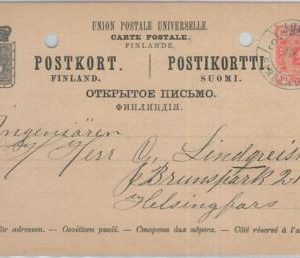 UNION POSTALE UNIVERSELLE.
CARTE POSTALE.
FINLANDE.
POSTKORT. POSTIKORTTI
FINLAND. SUOMI.
ОТКРЫТОЕ ПИСЬМО.
ФИНЛЯНДІЯ.
Ingeniören
Herr O. Lindqvist
Brunspark 2
Helsingfors
för adressen. — Osoitteen puoli. — Сторона для адреса. — Côté réservé à l'